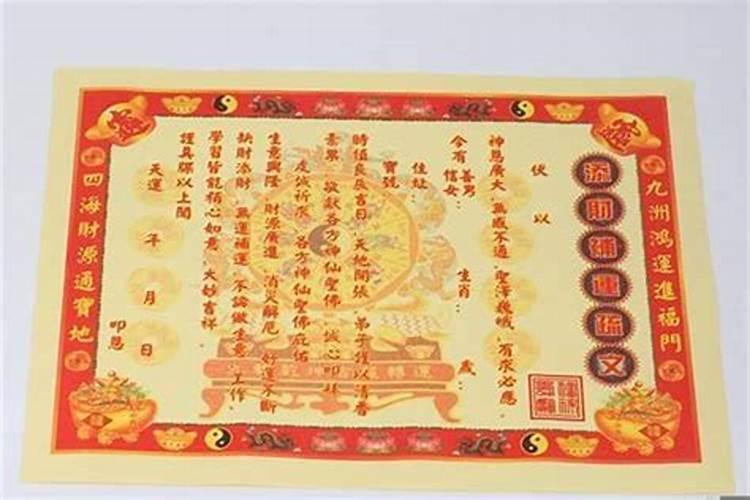 九洲鴻運進福門
添財補運疏文
伏以
神恩廣大 無感不通 聖澤巍峨 有求必應
今有善男信女： 生肖： 歲：
住址：
寶號
時值良辰吉日 天地開張 弟子謹以清香
素果 誠獻各方神仙聖佛 誠心叩拜
虔誠祈求 各方神仙聖佛庇佑
生意興隆 財源廣進 消災解厄 好運不斷
缺財添財 無運補運 不論做生意 工作、
學習皆能稱心如意 大妙吉祥
謹具疏以上聞
天運 年 月 日
叩恩
四海財源通寶地